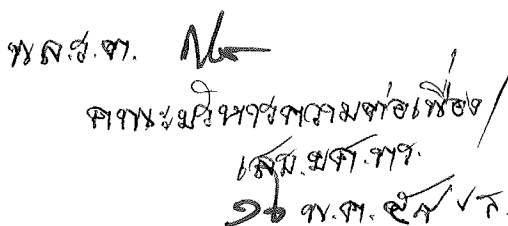 พล.ร.ต.
คณะบริหารความต่อเนื่อง/
เสธ.ยศ.ทร.
๑๖ พ.ค. ๕๘